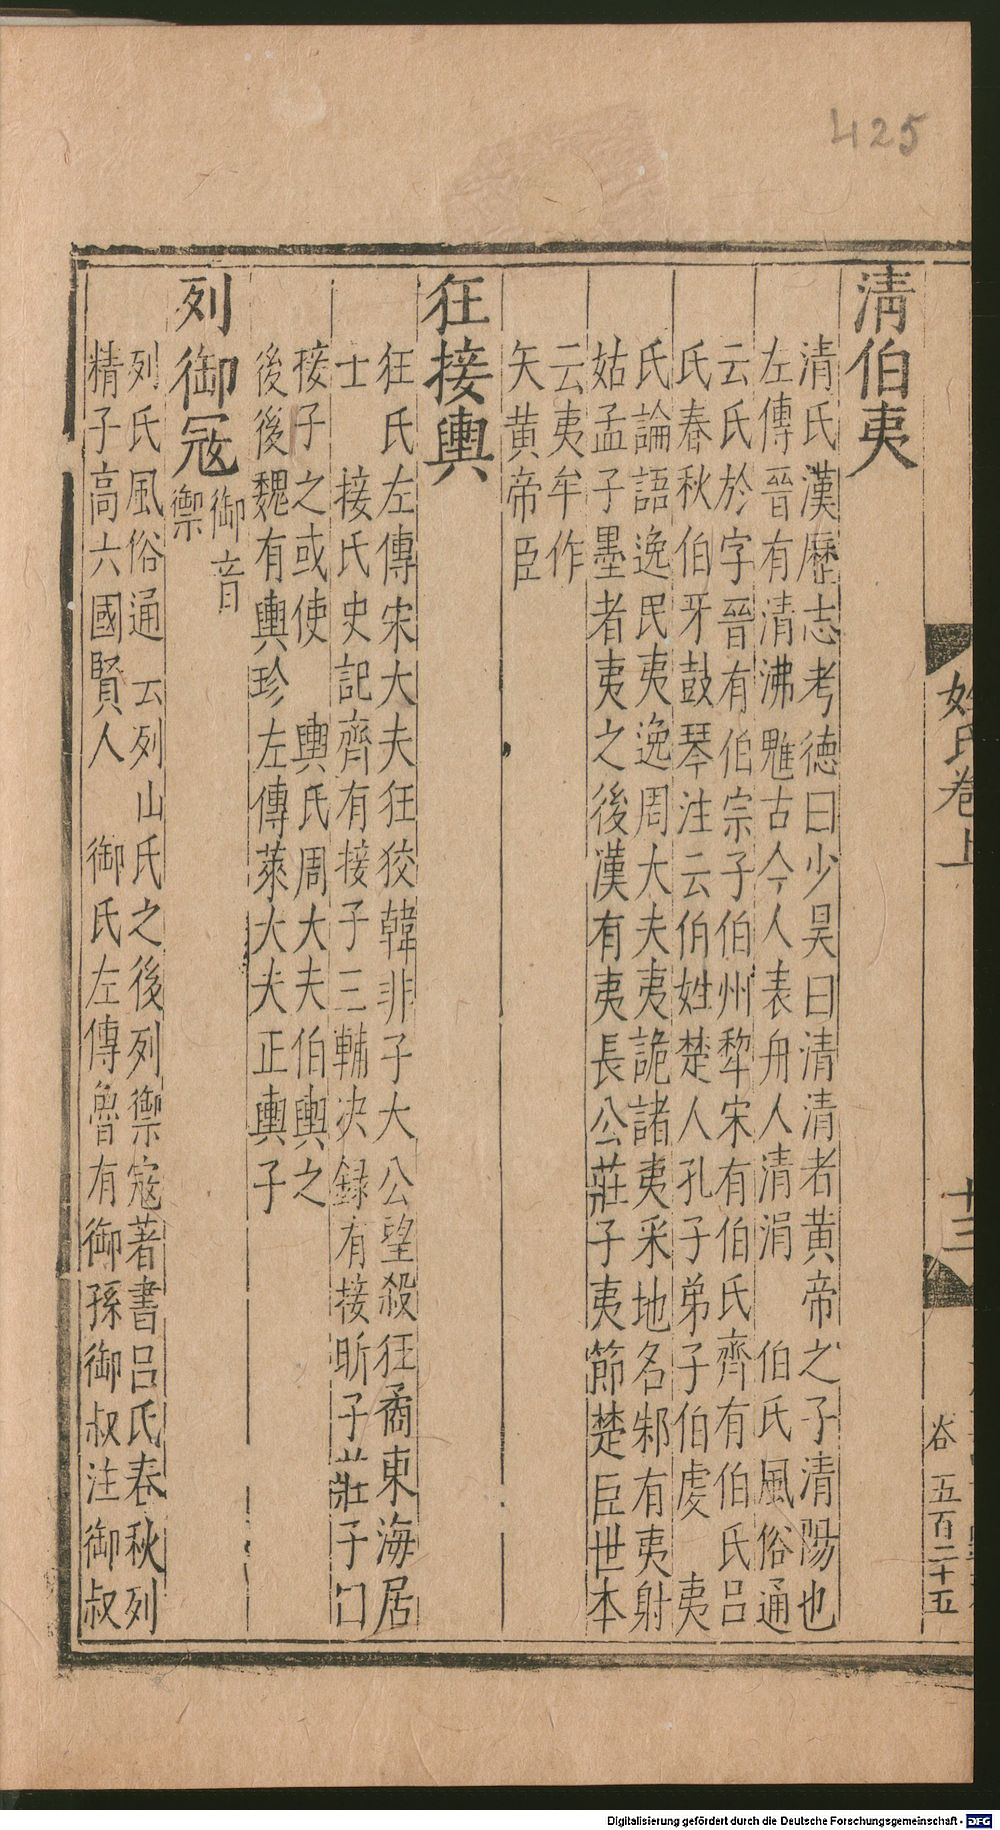 425
姓氏卷上
十三
卷五百二十五
清伯夷
清氏漢歷志考德曰少昊曰清清者黃帝之子清陽也
左傳晉有清沸魋古今人表舟人清涓　伯氏風俗通
云氏於字晉有伯宗子伯州犂宋有伯氏齊有伯氏呂
氏春秋伯牙鼓琴注云伯姓楚人孔子弟子伯虔　夷
氏論語逸民夷逸周大夫夷詭諸夷采地名邾有夷射
姑孟子墨者夷之後漢有夷長公莊子夷節楚臣世本
云夷牟作
矢黃帝臣
狂接輿
狂氏左傳宋大夫狂狡韓非子大公望殺狂矞東海居
士　接氏史記齊有接子三輔決録有接昕子莊子口
接子之或使　輿氏周大夫伯輿之
後後魏有輿珍左傳萊大夫正輿子
列御冦
御音
禦
列氏風俗通云列山氏之後列禦寇著書呂氏春秋列
精子高六國賢人　御氏左傳魯有御孫御叔注御叔
Digitalisierung gefördert durch die Deutsche Forschungsgemeinschaft - DFG